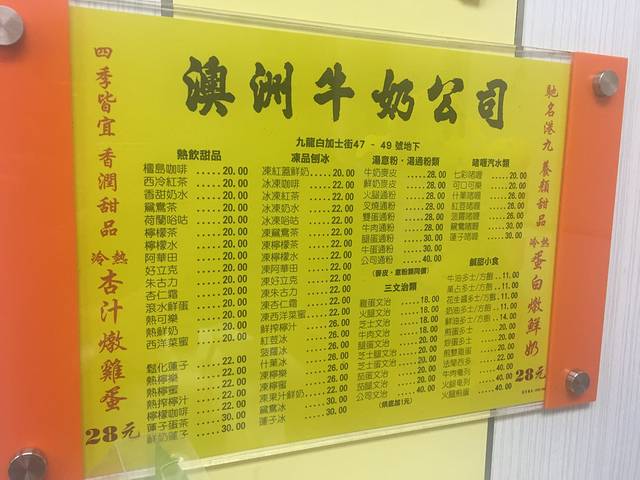 澳洲牛奶公司
九龍白加士街47 - 49 號地下
四季皆宜 香潤甜品
冷熱
杏汁燉雞蛋
28元
熱飲甜品
檀島咖啡 ..... 20.00
西冷紅茶 ..... 20.00
香甜奶水 ..... 20.00
鴛鴦茶 ..... 20.00
荷蘭唂咕 ..... 20.00
檸檬茶 ..... 20.00
檸檬水 ..... 20.00
阿華田 ..... 20.00
好立克 ..... 20.00
朱古力 ..... 20.00
杏仁霜 ..... 20.00
滾水鮮蛋 ..... 20.00
熱可樂 ..... 20.00
熱鮮奶 ..... 20.00
西洋菜蜜 ..... 20.00
鬆化蓮子 ..... 22.00
熱檸樂 ..... 22.00
熱檸蜜 ..... 22.00
熱搾檸汁 ..... 22.00
檸檬咖啡 ..... 30.00
蓮子蛋茶 ..... 30.00
鮮奶蓮子 ..... 30.00
凍品刨冰
凍紅蓋鮮奶 ..... 20.00
冰凍咖啡 ..... 22.00
冰凍紅茶 ..... 22.00
冰凍奶水 ..... 22.00
冰凍唂咕 ..... 22.00
凍鴛鴦茶 ..... 22.00
凍檸檬茶 ..... 22.00
凍檸檬水 ..... 22.00
凍阿華田 ..... 22.00
凍好立克 ..... 22.00
凍朱古力 ..... 22.00
凍杏仁霜 ..... 22.00
凍西洋菜蜜 ..... 22.00
鮮搾檸汁 ..... 26.00
紅荳冰 ..... 26.00
菠蘿冰 ..... 26.00
什菓冰 ..... 26.00
凍檸樂 ..... 26.00
凍檸蜜 ..... 22.00
凍果汁鮮奶 ..... 22.00
鴛鴦冰 ..... 30.00
蓮子冰 ..... 30.00
湯意粉・湯通粉類
牛奶麥皮 ..... 28.00
鮮奶麥皮 ..... 28.00
火腿通粉 ..... 28.00
叉燒通粉 ..... 28.00
雙蛋通粉 ..... 28.00
牛肉通粉 ..... 28.00
腿蛋通粉 ..... 30.00
牛蛋通粉 ..... 30.00
公司通粉 ..... 40.00
(麥皮、意粉類同價)
三文治類
雞蛋文治 ..... 18.00
火腿文治 ..... 18.00
芝士文治 ..... 18.00
牛肉文治 ..... 18.00
腿蛋文治 ..... 20.00
芝士腿文治 ..... 20.00
芝士蛋文治 ..... 20.00
茄蛋文治 ..... 20.00
茄腿文治 ..... 20.00
公司文治 ..... 40.00
(烘底加1元)
啫喱汽水類
七彩啫喱 ..... 20.00
可口可樂 ..... 20.00
什菓啫喱 ..... 26.00
紅荳啫喱 ..... 26.00
菠蘿啫喱 ..... 26.00
鴛鴦啫喱 ..... 30.00
蓮子啫喱 ..... 30.00
鹹甜小食
牛油多士/方飽 .. 11.00
菓占多士/方飽 .. 11.00
花生醬多士/方飽 .. 11.00
奶油多士/方飽 .. 11.00
鮮油多士/方飽 .. 14.00
煎蛋多士 ..... 20.00
炒蛋多士 ..... 20.00
煎雙雞蛋 ..... 20.00
法蘭西多 ..... 22.00
牛肉奄列 ..... 40.00
火腿奄列 ..... 40.00
火腿煎蛋 ..... 40.00
馳名港九 養顏甜品
冷熱
蛋白燉鮮奶
28元